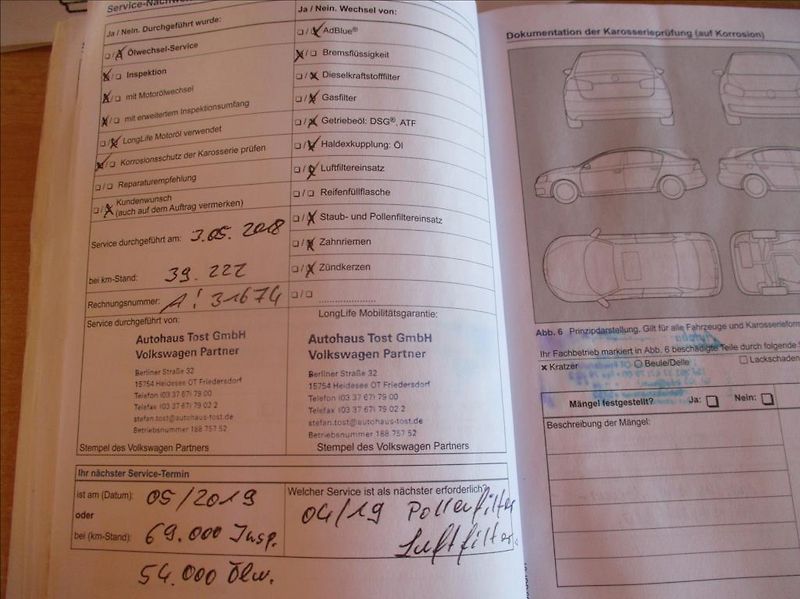 Service-Nachweis
Ja / Nein. Durchgeführt wurde:
Ölwechsel-Service
Inspektion
mit Motorölwechsel
mit erweitertem Inspektionsumfang
LongLife Motoröl verwendet
Korrosionsschutz der Karosserie prüfen
Reparaturempfehlung
Kundenwunsch
(auch auf dem Auftrag vermerken)
Service durchgeführt am: 3.05.2018
bei km-Stand: 39.222
Rechnungsnummer: A! 31674
Service durchgeführt von:
Autohaus Tost GmbH
Volkswagen Partner
Berliner Straße 32
15754 Heidesee OT Friedersdorf
Telefon (03 37 67) 79 00
Telefax (03 37 67) 79 02 2
stefan.tost@autohaus-tost.de
Betriebsnummer 188 757 52
Stempel des Volkswagen Partners
Ja / Nein. Wechsel von:
AdBlue®
Bremsflüssigkeit
Dieselkraftstofffilter
Gasfilter
Getriebeöl: DSG®, ATF
Haldexkupplung: Öl
Luftfiltereinsatz
Reifenfüllflasche
Staub- und Pollenfiltereinsatz
Zahnriemen
Zündkerzen
LongLife Mobilitätsgarantie:
Autohaus Tost GmbH
Volkswagen Partner
Berliner Straße 32
15754 Heidesee OT Friedersdorf
Telefon (03 37 67) 79 00
Telefax (03 37 67) 79 02 2
stefan.tost@autohaus-tost.de
Betriebsnummer 188 757 52
Stempel des Volkswagen Partners
Ihr nächster Service-Termin
ist am (Datum): 05/2019
oder
bei (km-Stand): 69.000 Insp.
54.000 Ölw.
Welcher Service ist als nächster erforderlich?
04/19 Pollenfilter
Luftfilter
Dokumentation der Karosserieprüfung (auf Korrosion)
Abb. 6 Prinzipdarstellung. Gilt für alle Fahrzeuge und Karosserieform
Ihr Fachbetrieb markiert in Abb. 6 beschädigte Teile durch folgende
x Kratzer O Beule/Delle Lackschaden
Mängel festgestellt? Ja: Nein:
Beschreibung der Mängel: